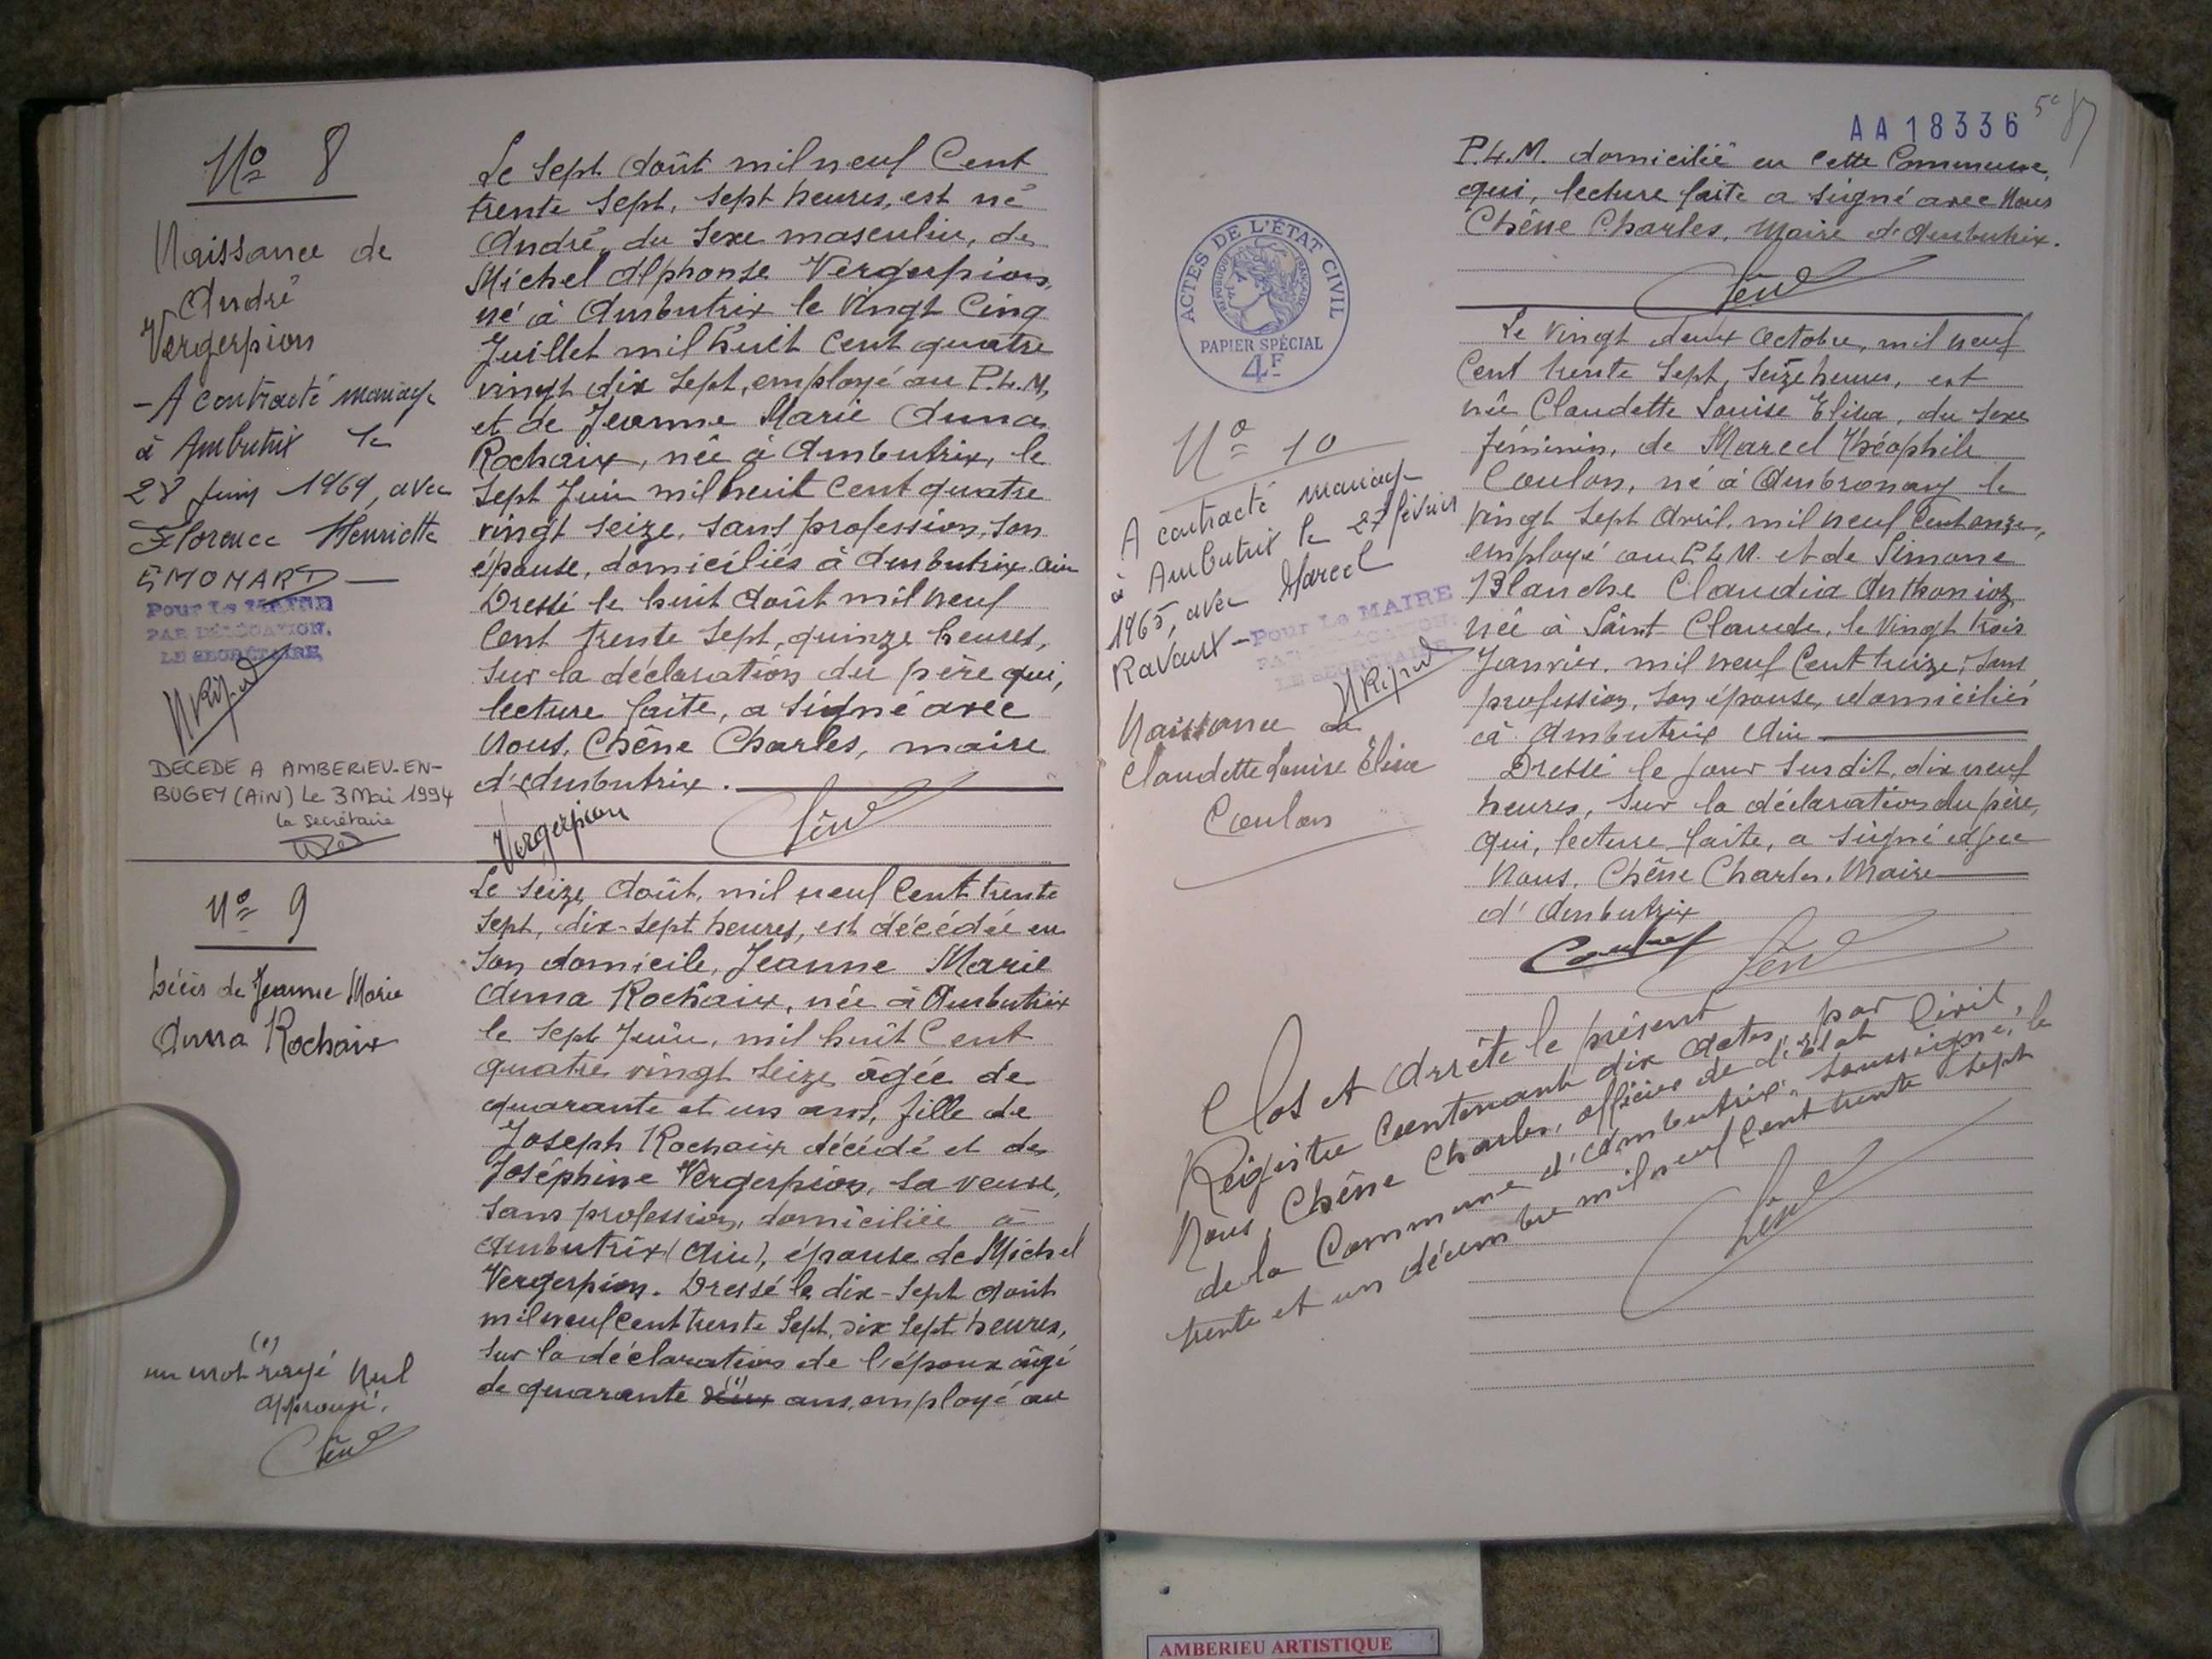 N° 8
Naissance de
André
Vergerpion
- A contracté mariage
à Ambutrix le
28 Juin 1969, avec
Florence Henriette
SMOMART —
Pour Le MAIRE
PAR DÉLÉGATION,
LE SECRÉTAIRE,
DECEDE A AMBERIEU-EN-
BUGEY (AIN) Le 3 Mai 1994
la Secrétaire
Le Sept Août mil neuf Cent
trente Sept, Sept heures, est né
André, du Sexe masculin, de
Michel Alphonse Vergerpion,
né à Ambutrix le Vingt Cinq
Juillet mil huit Cent quatre
vingt dix Sept, employé au P.L.M,
et de Jeanne Marie Anna
Rochaix, née à Ambutrix, le
Sept Juin mil huit Cent quatre
vingt Seize, Sans profession, Son
épouse, domiciliés à Ambutrix Ain
Dressé le huit Août mil neuf
Cent trente Sept, quinze heures,
Sur la déclaration du père qui,
lecture faite, a Signé avec
Nous, Chêne Charles, maire
d'Ambutrix.
Vergerpion
N° 9
Décès de Jeanne Marie
Anna Rochaix
(1)
un mot rayé Nul
approuvé.
Le Seize Août, mil neuf Cent trente
Sept, dix-Sept heures, est décédée en
Son domicile, Jeanne Marie
Anna Rochaix, née à Ambutrix
le Sept Juin, mil huit Cent
quatre vingt Seize, âgée de
quarante et un ans, fille de
Joseph Rochaix décédé et de
Joséphine Vergerpion, Sa veuve,
Sans profession, domiciliée à
Ambutrix (Ain), épouse de Michel
Vergerpion. Dressé le dix-Sept Août
mil neuf Cent trente Sept, dix Sept heures,
Sur la déclaration de l'époux âgé
de quarante deux (1) ans, employé au
AA18336
P.L.M. domicilié en Cette Commune,
qui, lecture faite a Signé avec Nous
Chêne Charles, Maire d'Ambutrix.
ACTES DE L'ÉTAT CIVIL
RÉPUBLIQUE FRANÇAISE
PAPIER SPÉCIAL
4F
N° 10
A contracté mariage
à Ambutrix le 27 février
1965, avec Marcel
Ravaux -
Pour Le MAIRE
PAR DÉLÉGATION,
LE SECRÉTAIRE
Naissance de
Claudette Louise Elisa
Coulon
Le Vingt deux Octobre, mil neuf
Cent trente Sept, Seize heures, est
née Claudette Louise Elisa, du Sexe
féminin, de Marcel Théophile
Coulon, né à Ambronay le
Vingt Sept Avril, mil neuf Cent onze,
employé au P.L.M. et de Simone
Blanche Claudia Anthonioz,
née à Saint-Claude, le Vingt trois
Janvier, mil neuf Cent treize, Sans
profession, Son épouse, domiciliés
à Ambutrix Ain
Dressé le jour Susdit, dix neuf
heures, Sur la déclaration du père,
qui, lecture faite, a Signé avec
Nous, Chêne Charles, Maire
d'Ambutrix
Clos et Arrêté le présent
Registre Contenant dix Actes, par
Nous, Chêne Charles, officier de l'Etat Civil,
de la Commune d'Ambutrix, Soussigné, le
trente et un décembre mil neuf Cent trente Sept
AMBERIEU ARTISTIQUE